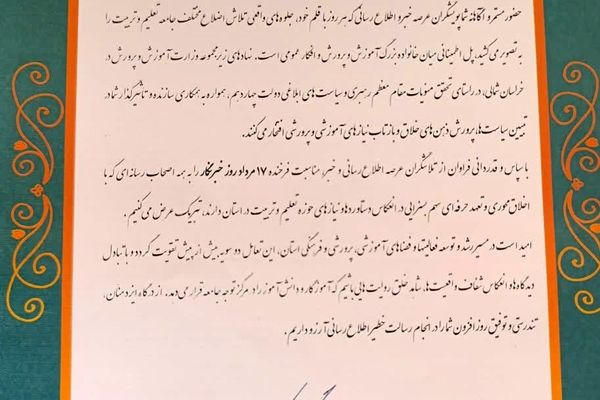 حضور مستمر و آگاهانه شما پویشگران عرصه خبر و اطلاع رسانی که هر روز با قلم خود، جلوه‌های واقعی تلاش اضلاع مختلف جامعه تعلیم و تربیت را
به تصویر می‌کشید، پل اطمینانی میان خانواده بزرگ آموزش و پرورش و افکار عمومی است. نهادهای زیرمجموعه وزارت آموزش و پرورش در
خراسان شمالی، در راستای تحقق منویات مقام معظم رهبری و سیاست‌های ابلاغی دولت چهاردهم، همواره به همکاری سازنده و تأثیرگذار شما در
تبیین سیاست‌ها، پرورش ذهن‌های خلاق و بازتاب نیازهای آموزشی و پرورشی افتخار می‌کنند.
با سپاس و قدردانی فراوان از تلاشگران عرصه اطلاع رسانی و خبر، مناسبت فرخنده ۱۷ مرداد روز خبرنگار را به همه اصحاب رسانه‌ای که با
اخلاق محوری و تعهد حرفه‌ای سهم بسزایی در انعکاس دستاوردها و نیازهای حوزه تعلیم و تربیت در استان دارند، تبریک عرض می‌کنیم.
امید است در مسیر رشد و توسعه فعالیتها و فضاهای آموزشی، پرورشی و فرهنگی استان، این تعامل دو سویه بیش از پیش تقویت گردد و با تبادل
دیدگاه‌ها و انعکاس شفاف واقعیت‌ها، شاهد خلق روایت‌هایی باشیم که آموزگار و دانش‌آموز را در مرکز توجه جامعه قرار می‌دهد. از درگاه ایزد منان،
تندرستی و توفیق روز افزون شما را در انجام رسالت خطیر اطلاع رسانی آرزو داریم.